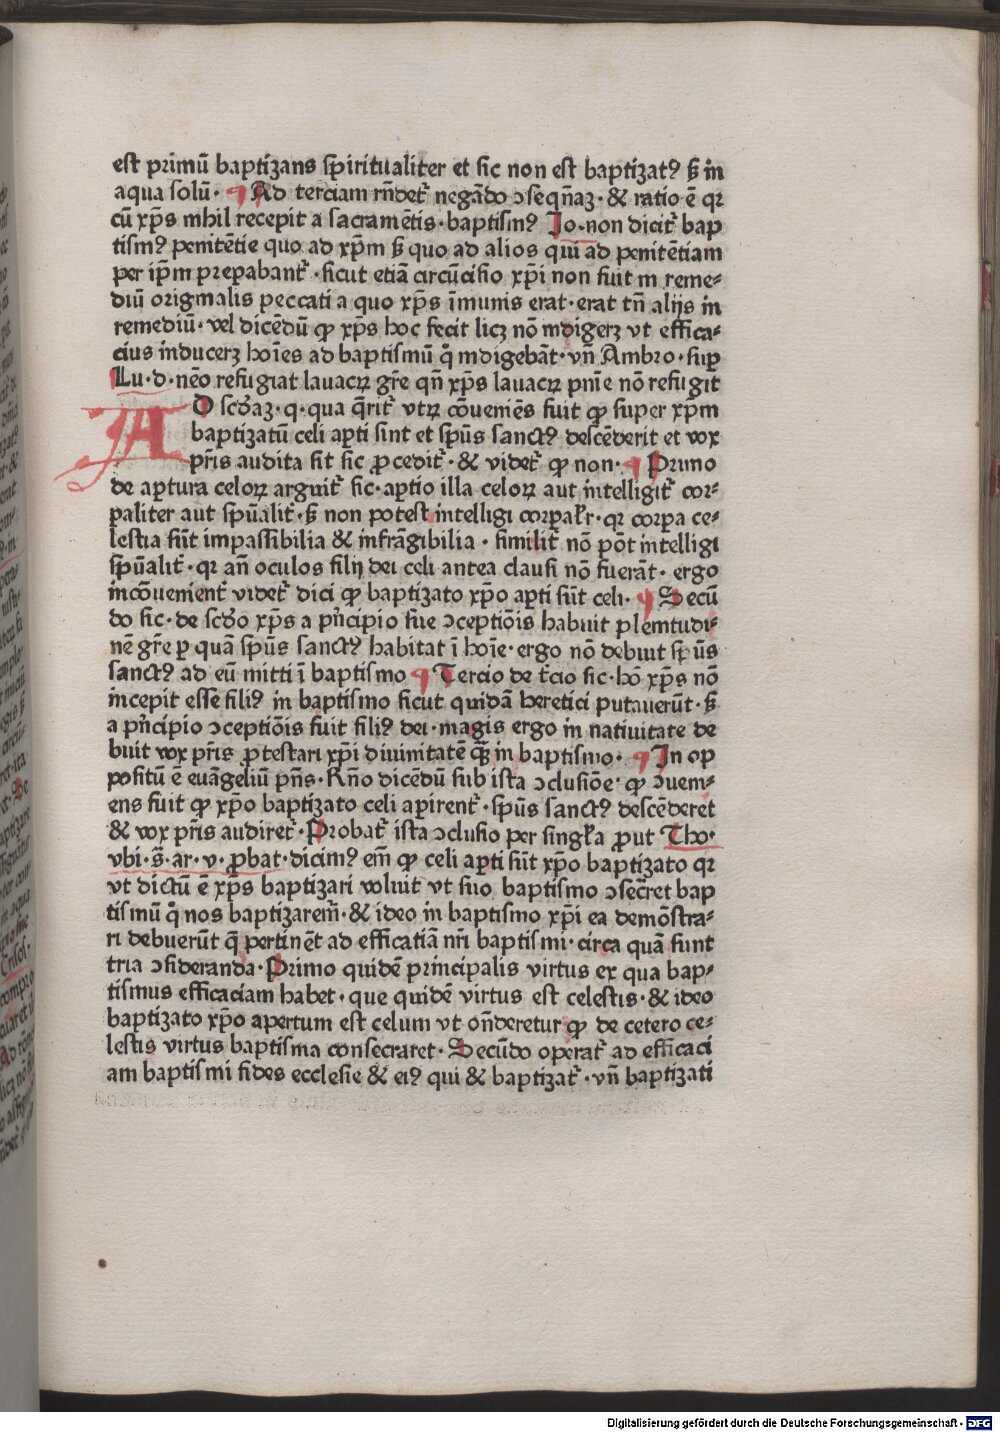 est primū baptizans spiritualiter et sic non est baptizatꝰ sꝫ in
aqua solū · ¶ Ad terciam rn̄detr̄ negādo ↄseqn̄aꝫ · & ratio ē qꝛ
cū xp̄s nihil recepit a sacramētis · baptismꝰ Io · non dicitr̄ bap
tismꝰ penitētie quo ad xp̄m sꝫ quo ad alios qui ad penitētiam
per ip̄m prepabantr̄ · sicut etiā circūcisio xp̄i non fuit in reme⸗
diū originalis peccati a quo xp̄s īmunis erat · erat tn̄ alijs in
remediū · vel dicēdū ꝙ xp̄s hoc fecit licꝫ nō indigerꝫ vt effica⸗
cius inducerꝫ hoīes ad baptismū q̄ indigebāt · vn̄ Ambro · suꝑ
Lu · d · nēo refugiat lavacꝝ gr̄e qn̄ xp̄s lavacꝝ pn̄ie nō refugit
AD scd̄aꝫ · q · qua q̄ritr̄ vtꝝ cōveniēs fuit ꝙ super xp̄m
baptizatū celi aꝑti sint et sp̄us sanctꝰ descēderit et vox
pr̄is audita sit sic ꝓceditr̄ · & videtr̄ ꝙ non · ¶ Primo
de aꝑtura celoꝝ arguitr̄ sic · aꝑtio illa celoꝝ aut intelligitr̄ cor⸗
ꝑaliter aut sp̄ualitr̄ · sꝫ non potest intelligi corꝑalr̄ · qꝛ corꝑa ce⸗
lestia sūt impassibilia & infrāgibilia · similitr̄ nō pōt intelligi
sp̄ualitr̄ · qꝛ an̄ oculos filij dei celi antea clausi nō fuerāt · ergo
incōvenientr̄ videtr̄ dici ꝙ baptizato xp̄o aꝑti sūt celi · ¶ Secū
do sic · de scd̄o xp̄s a pn̄cipio sue ↄceptiōis habuit plenitudi⸗
nē gr̄e ꝑ quā sp̄us sanctꝰ habitat ī hoīe · ergo nō debuit sp̄us
sanctꝰ ad eū mitti ī baptismo ¶ Tercio de tr̄cio sic · hō xp̄s nō
incepit esse filiꝰ in baptismo sicut quidā heretici putaverūt · sꝫ
a pn̄cipio ↄceptiōis fuit filiꝰ dei · magis ergo in nativitate de
buit vox pr̄is ꝓtestari xp̄i divinitatē q̄ꝫ in baptismo · ¶ In op
positū ē evāgeliū pn̄s · Rn̄o dicēdū sub ista ↄclusiōe · ꝙ ↄveni⸗
ens fuit ꝙ xp̄o baptizato celi aꝑirentr̄ · sp̄us sanctꝰ descēderet
& vox pr̄is audiretr̄ · Probatr̄ ista ↄclusio per singl̄a ꝓut Tho ·
vbi · s̄ · ar · v · ꝓbat · dicimꝰ em̄ ꝙ celi aꝑti sūt xp̄o baptizato qꝛ
vt dictū ē xp̄s baptizari voluit vt suo baptismo ↄsecr̄et bap
tismū q̄ nos baptizaremr̄ · & ideo in baptismo xp̄i ea demōstra⸗
ri debuerūt q̄ pertinēt ad efficatiā nr̄i baptismi · circa quā sunt
tria ↄsideranda · Primo quidē principalis virtus ex qua bap⸗
tismus efficaciam habet · que quidē virtus est celestis · & ideo
baptizato xp̄o apertum est celum vt on̄deretur ꝙ de cetero ce⸗
lestis virtus baptisma consecraret · Secūdo operatr̄ ad efficaci
am baptismi fides ecclesie & eiꝰ qui & baptizatr̄ · vn̄ baptizati
Digitalisierung gefördert durch die Deutsche Forschungsgemeinschaft - DFG